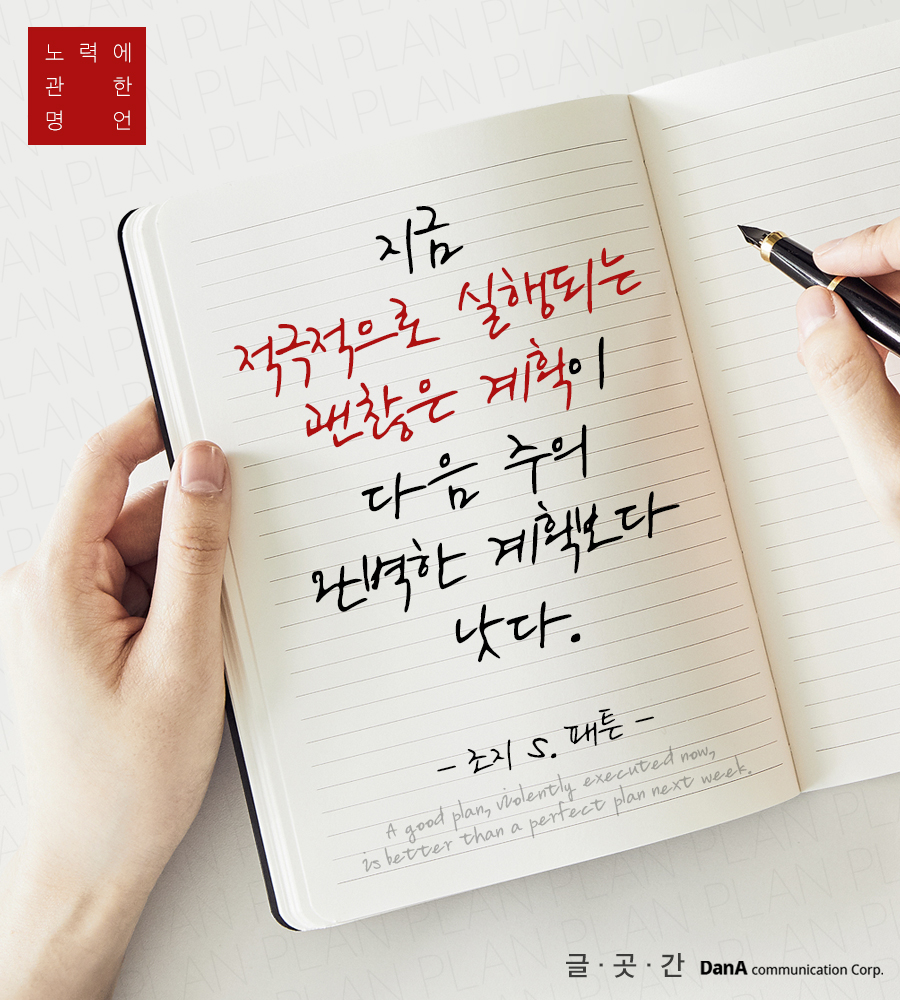 노력에
관한
명언
지금
적극적으로 실행되는
괜찮은 계획이
다음 주의
완벽한 계획보다
낫다.
- 조지 S. 패튼 -
A good plan, violently executed now,
is better than a perfect plan next week.
글·곳·간 DanA communication Corp.
PLAN PLAN PLAN PLAN